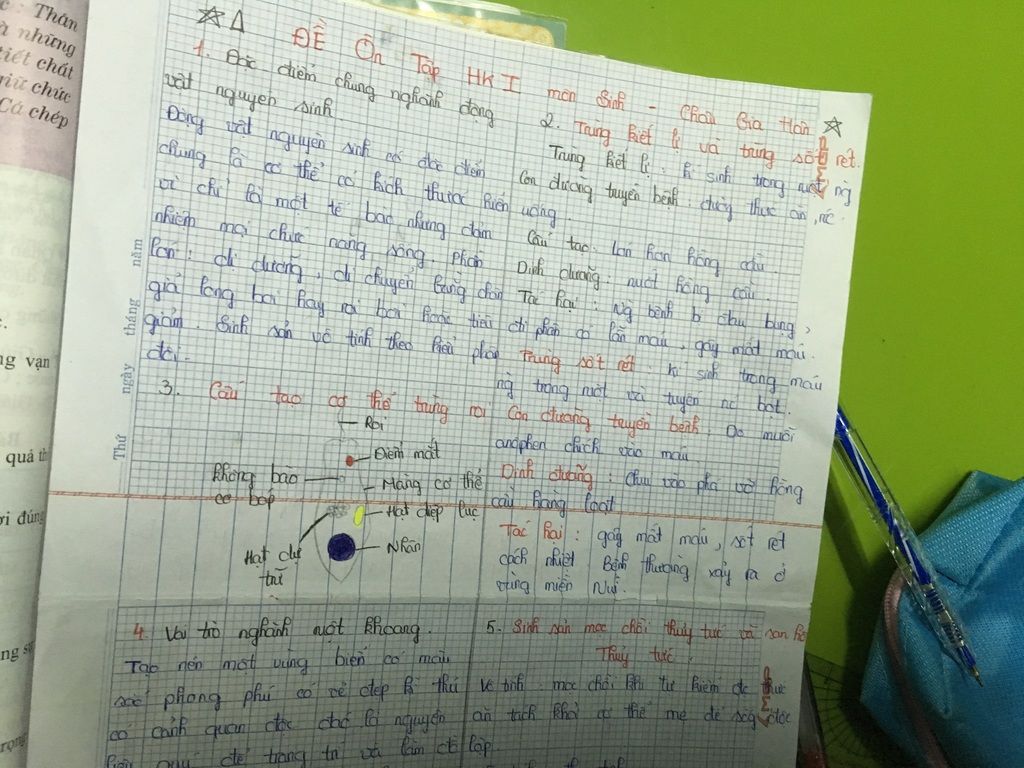 Thân
à những
tiết chất
giữ chức
Cá chép
ng vạn
quả th
ơi đúng
Thứ ngày tháng năm
ĐỀ Ôn Tập HK I môn Sinh - Châu Gia Hân
1. Đặc điểm chung nghành động
vật nguyên sinh
Động vật nguyên sinh có đặc điểm
chung là cơ thể có kích thước hiển
vi chỉ là một tế bào nhưng đảm
nhiệm mọi chức năng sống. phần
lớn: dị dưỡng, di chuyển bằng chân
giả, lông bơi hay roi bơi hoặc tiêu
giảm. Sinh sản vô tính theo kiểu phân
đôi.
2. Trùng kiết lị và trùng sốt rét.
Trùng kiết lị: kí sinh trong ruột ng
Con đường truyền bệnh: qua thức ăn, nc
uống.
Cấu tạo: lớn hơn hồng cầu.
Dinh dưỡng: nuốt hồng cầu.
Tác hại: Ng bệnh b đau bụng,
đi phân có lẫn máu, gây mất máu.
Trùng sốt rét: kí sinh trong máu
ng trong ruột và tuyến nc bọt.
Con đường truyền bệnh: Do muỗi
anôphen chích vào máu
Dinh dưỡng: chui vào phá vỡ hồng
cầu hàng loạt
Tác hại: gây mất máu, sốt rét
cách nhiệt Bệnh thường xảy ra ở
vùng miền Núi.
3. Cấu tạo cơ thể trùng roi
Roi
Điểm mắt
Không bào
co bóp
Màng cơ thể
Hạt diệp lục
Hạt dự
trữ
Nhân
4. Vai trò nghành ruột khoang.
Tạo nên một vùng biển có màu
sắc phong phú có vẻ đẹp kì thú
có cảnh quan độc đáo là nguyên
liệu quý để trang trí và làm đồ
5. Sinh sản mọc chồi thủy tức và san hô
Thủy tức.
Vô tính: mọc chồi khi tự kiếm đc thức
ăn tách khỏi cơ thể mẹ để sống độc
lập